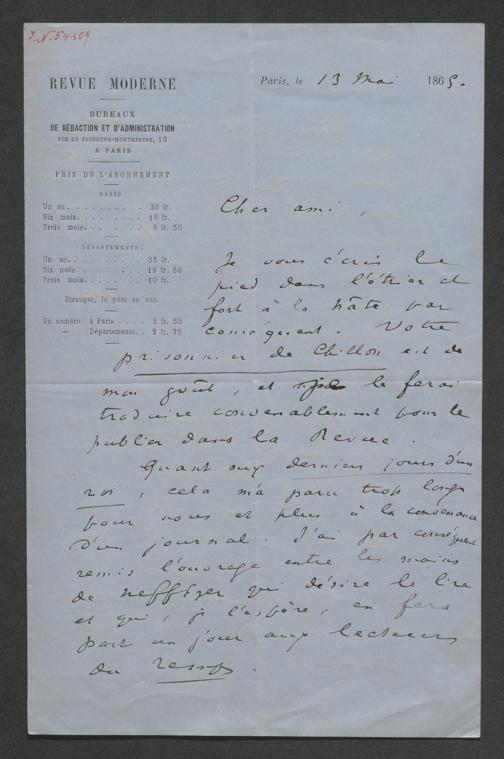 I.N. 54109
REVUE MODERNE
BUREAUX
DE RÉDACTION ET D'ADMINISTRATION
RUE DU FAUBOURG-MONTMARTRE, 10
A PARIS
PRIX DE L'ABONNEMENT
PARIS
Un an. . . . . . . . . . 30 fr.
Six mois. . . . . . . . . 16 fr.
Trois mois. . . . . . . . 8 fr. 50
DÉPARTEMENTS.
Un an. . . . . . . . . . 35 fr.
Six mois. . . . . . . . . 19 fr. 50
Trois mois. . . . . . . . 10 fr.
Etranger, le port en sus.
Un numéro : à Paris. . . . . 2 fr. 50
— Départements. . 2 fr. 75
Paris, le 13 Mai 1865.
Cher ami,
Je vous écris le
pied dans l'étrier et
fort à la hâte par
conséquent. Votre
prisonnier de Chillon est de
mon goût, et je le ferai
traduire convenablement pour le
publier dans la Revue.
Quant aux derniers jours d'un
roi, cela m'a paru trop long
pour nous et plus à la convenance
d'un journal. J'ai par conséquent
remis l'ouvrage entre les mains
de Nefftzer qui désire le lire
et qui, je l'espère, en fera
part un jour aux lecteurs
du Temps.